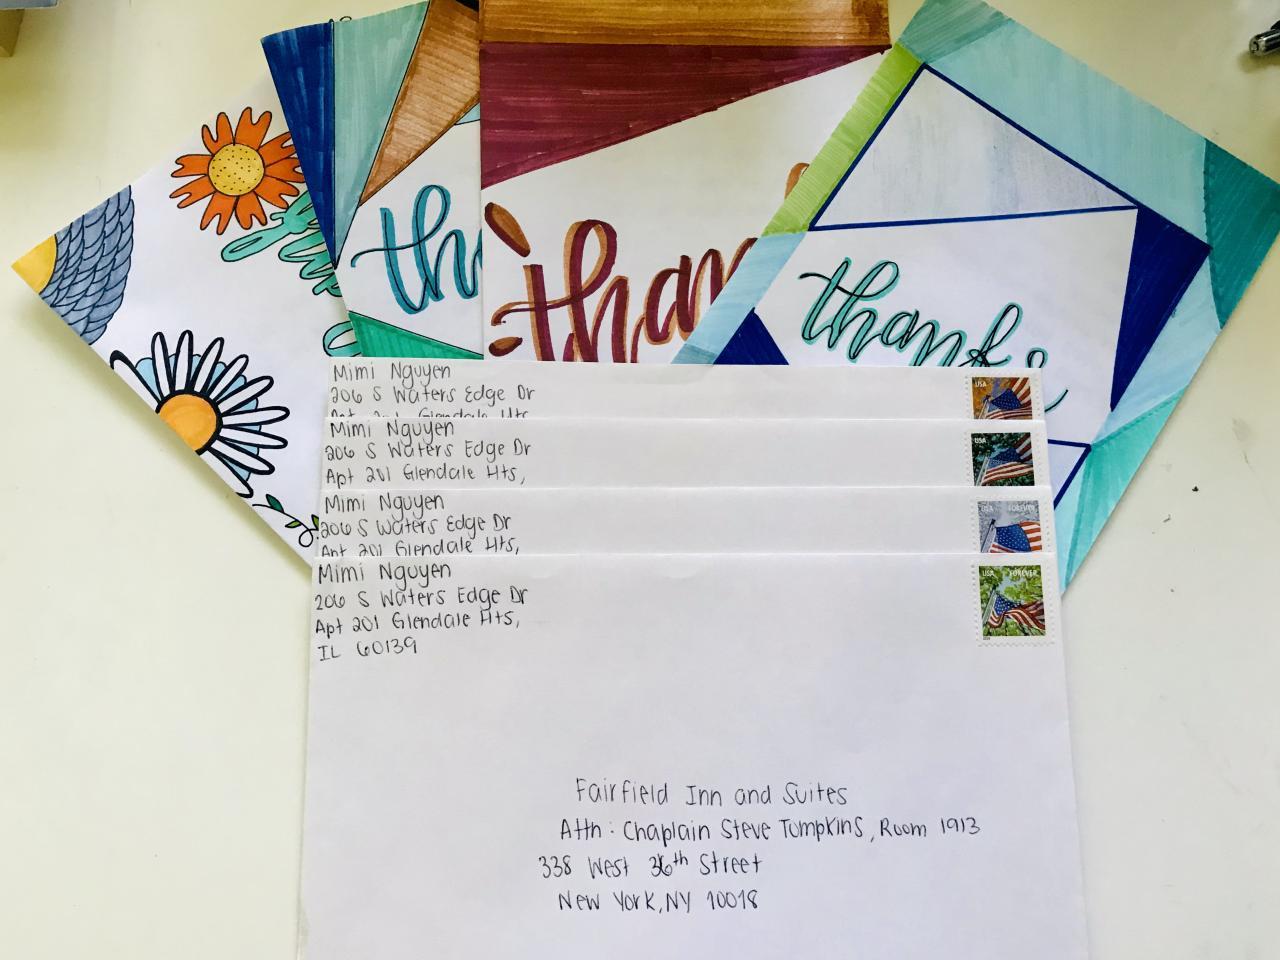 thank
thanks
Mimi Nguyen
206 S Waters Edge Dr
Apt 201 Glendale Hts,
USA
Mimi Nguyen
206 S Waters Edge Dr
Apt 201 Glendale Hts,
USA
Mimi Nguyen
206 S Waters Edge Dr
Apt 201 Glendale Hts,
USA FOREVER
Mimi Nguyen
206 S Waters Edge Dr
Apt 201 Glendale Hts,
IL 60139
USA FOREVER
Fairfield Inn and Suites
Attn: Chaplain Steve Tompkins, Room 1913
338 West 36th Street
New York, NY 10018